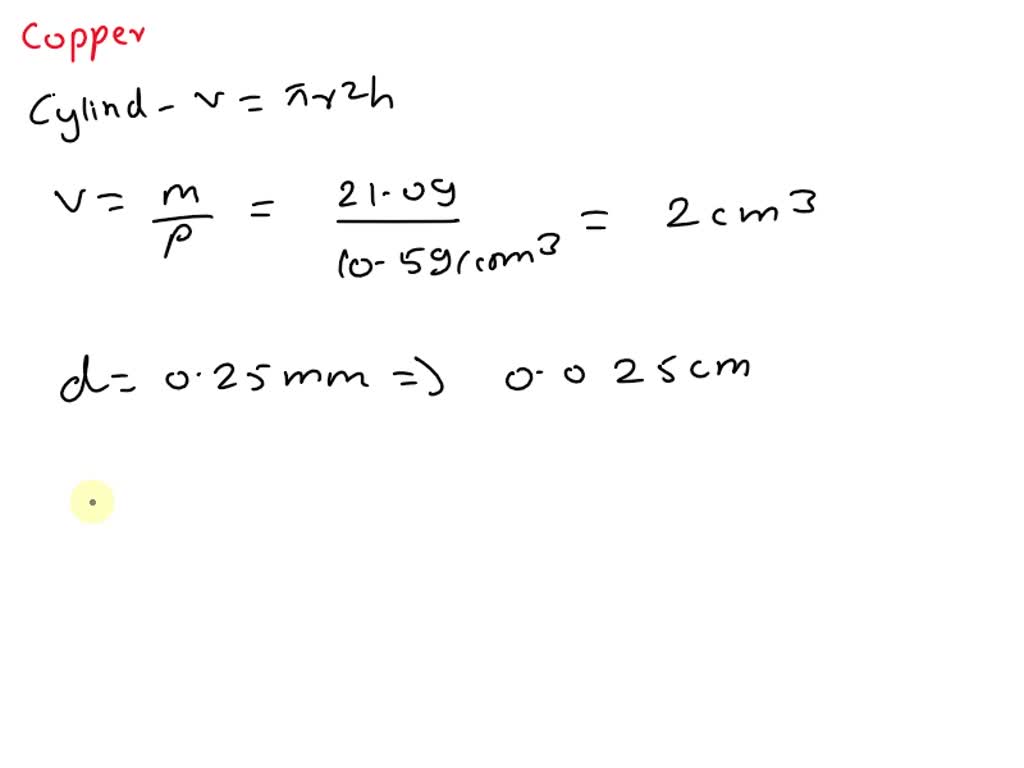 Copper
Cylind - v = πr2h
v = m/ρ = 21.0g/10.5g/cm3 = 2cm3
d = 0.25mm => 0.025cm